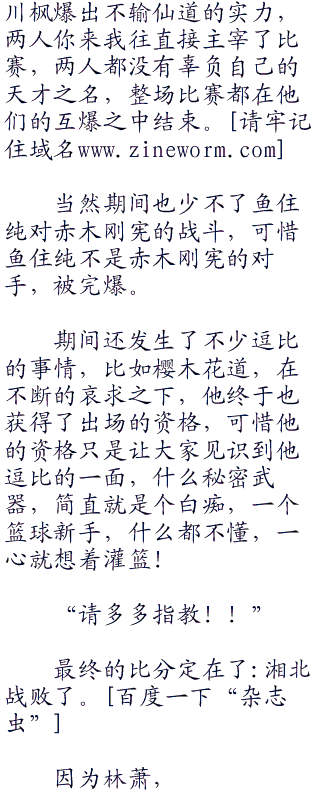 川枫爆出不输仙道的实力，
两人你来我往直接主宰了比
赛，两人都没有辜负自己的
天才之名，整场比赛都在他
们的互爆之中结束。[请牢记
住域名www.zineworm.com]
当然期间也少不了鱼住
纯对赤木刚宪的战斗，可惜
鱼住纯不是赤木刚宪的对
手，被完爆。
期间还发生了不少逗比
的事情，比如樱木花道，在
不断的哀求之下，他终于也
获得了出场的资格，可惜他
的资格只是让大家见识到他
逗比的一面，什么秘密武
器，简直就是个白痴，一个
篮球新手，什么都不懂，一
心就想着灌篮！
“请多多指教！！”
最终的比分定在了：湘北
战败了。[百度一下“杂志
虫”]
因为林萧，